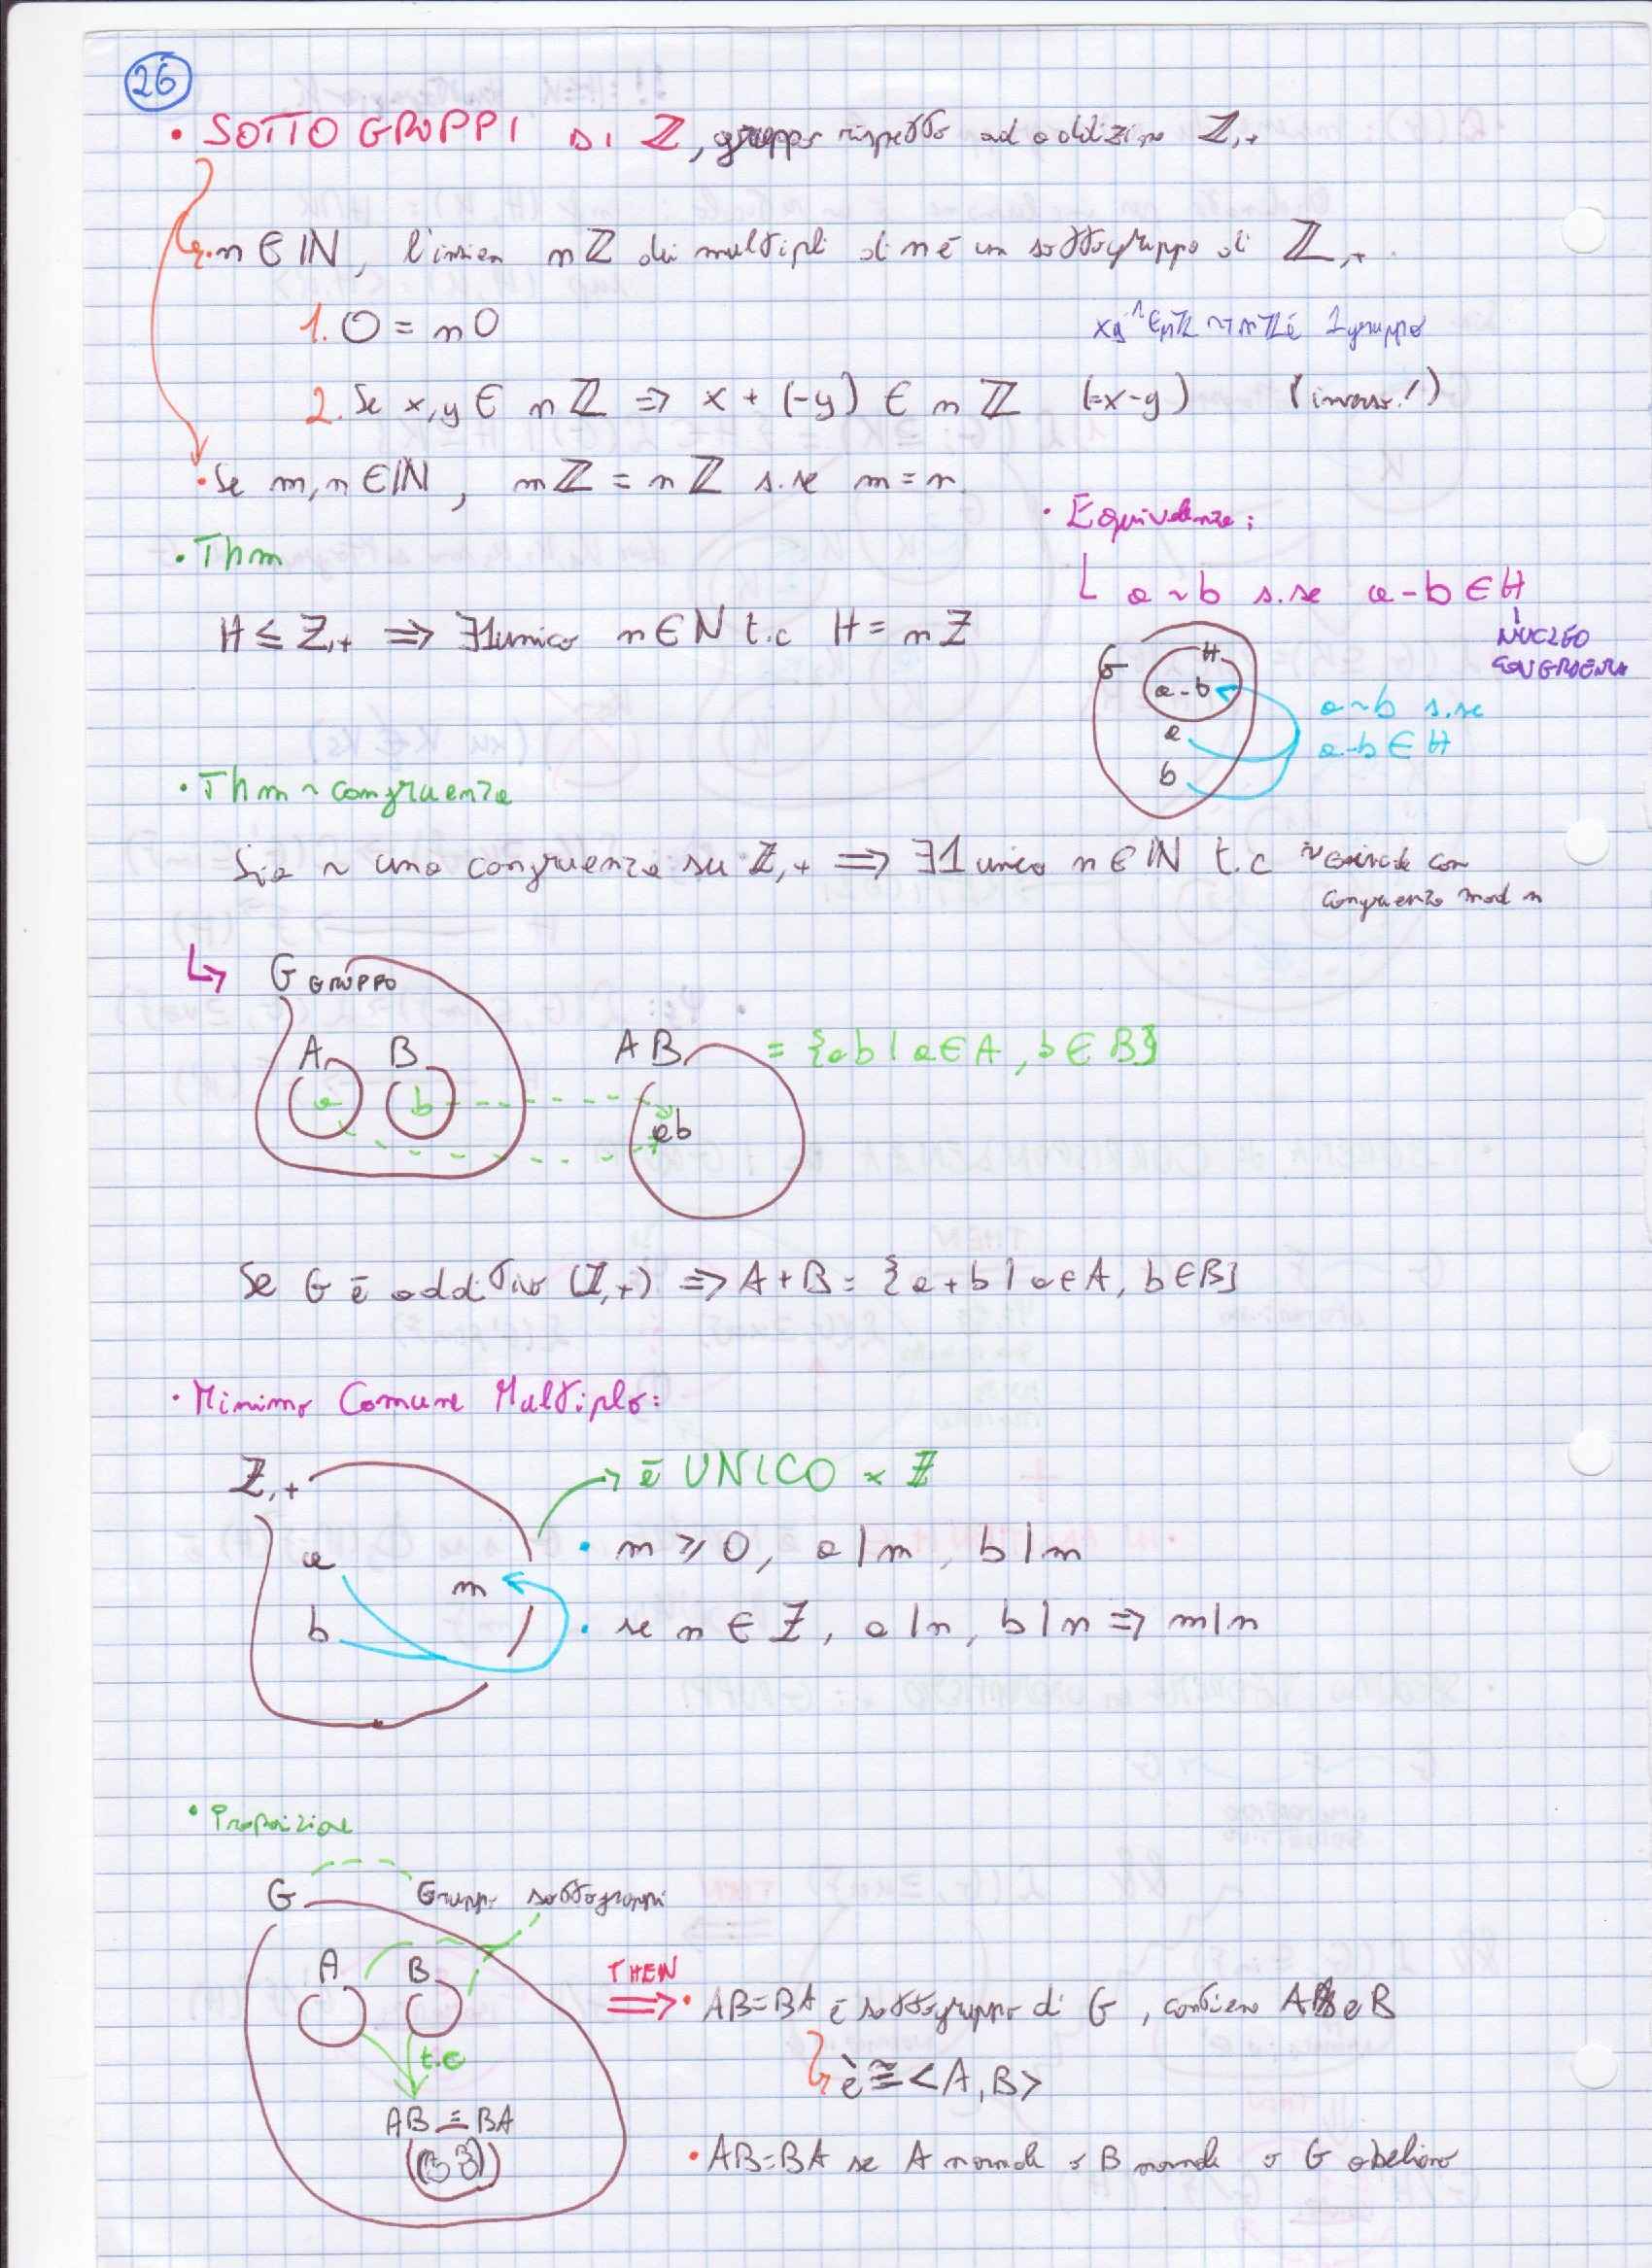 26
• SOTTO GRUPPI DI ℤ, gruppo rispetto ad addizine ℤ,+
• n ∈ ℕ, l'insien nℤ dei multipli di n è un sottogruppo di ℤ,+.
1. 0 = n0
xy⁻¹ ∈ nℤ ~> nℤ è 1 gruppo
2. Se x,y ∈ nℤ ⇒ x + (-y) ∈ nℤ (=x-y) (inverso!)
• Se m,n ∈ ℕ, mℤ = nℤ s.se m = n
• Equivalenze:
a ~ b s.se a - b ∈ H
NUCLEO
CONGRUENZA
• Thm
H ≤ ℤ,+ ⇒ ∃1 unico n ∈ ℕ t.c H = nℤ
G
H
a-b
a
b
a~b s.se
a-b ∈ H
• Thm ~ congruenze
Sia ~ una congruenza su ℤ,+ ⇒ ∃1 unico n ∈ ℕ t.c ~ coincide con
congruenza mod n
G GRUPPO
A B
a b
AB = {ab | a ∈ A, b ∈ B}
ab
Se G è additivo (ℤ,+) ⇒ A+B = {a+b | a ∈ A, b ∈ B}
• Minimo Comune Multiplo:
ℤ,+
→ è UNICO x ℤ
a
b
m
• m ≥ 0, a|m, b|m
• se n ∈ ℤ, a|n, b|n ⇒ m|n
• Proposizione
G Gruppo sottogruppi
A B
t.c
AB = BA
THEN
⇒ • AB=BA è sottogruppo di G, contiene A e B
è ≅ <A,B>
• AB=BA se A normale o B normale o G abeliano